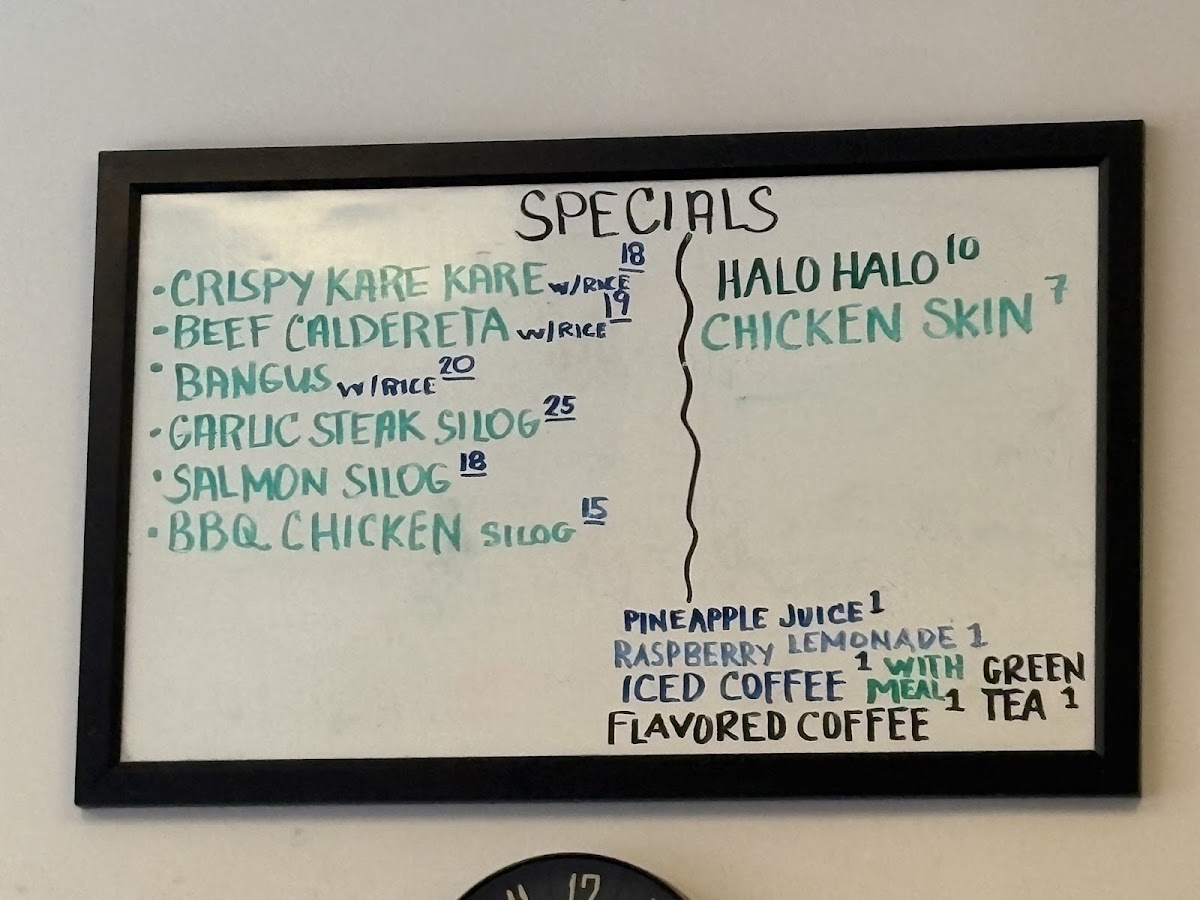 SPECIALS
• CRISPY KARE KARE W/RICE 18
• BEEF CALDERETA W/RICE 19
• BANGUS W/RICE 20
• GARLIC STEAK SILOG 25
• SALMON SILOG 18
• BBQ CHICKEN SILOG 15
HALO HALO 10
CHICKEN SKIN 7
PINEAPPLE JUICE 1
RASPBERRY LEMONADE 1
ICED COFFEE 1 WITH MEAL
FLAVORED COFFEE 1
GREEN
TEA 1
11 12